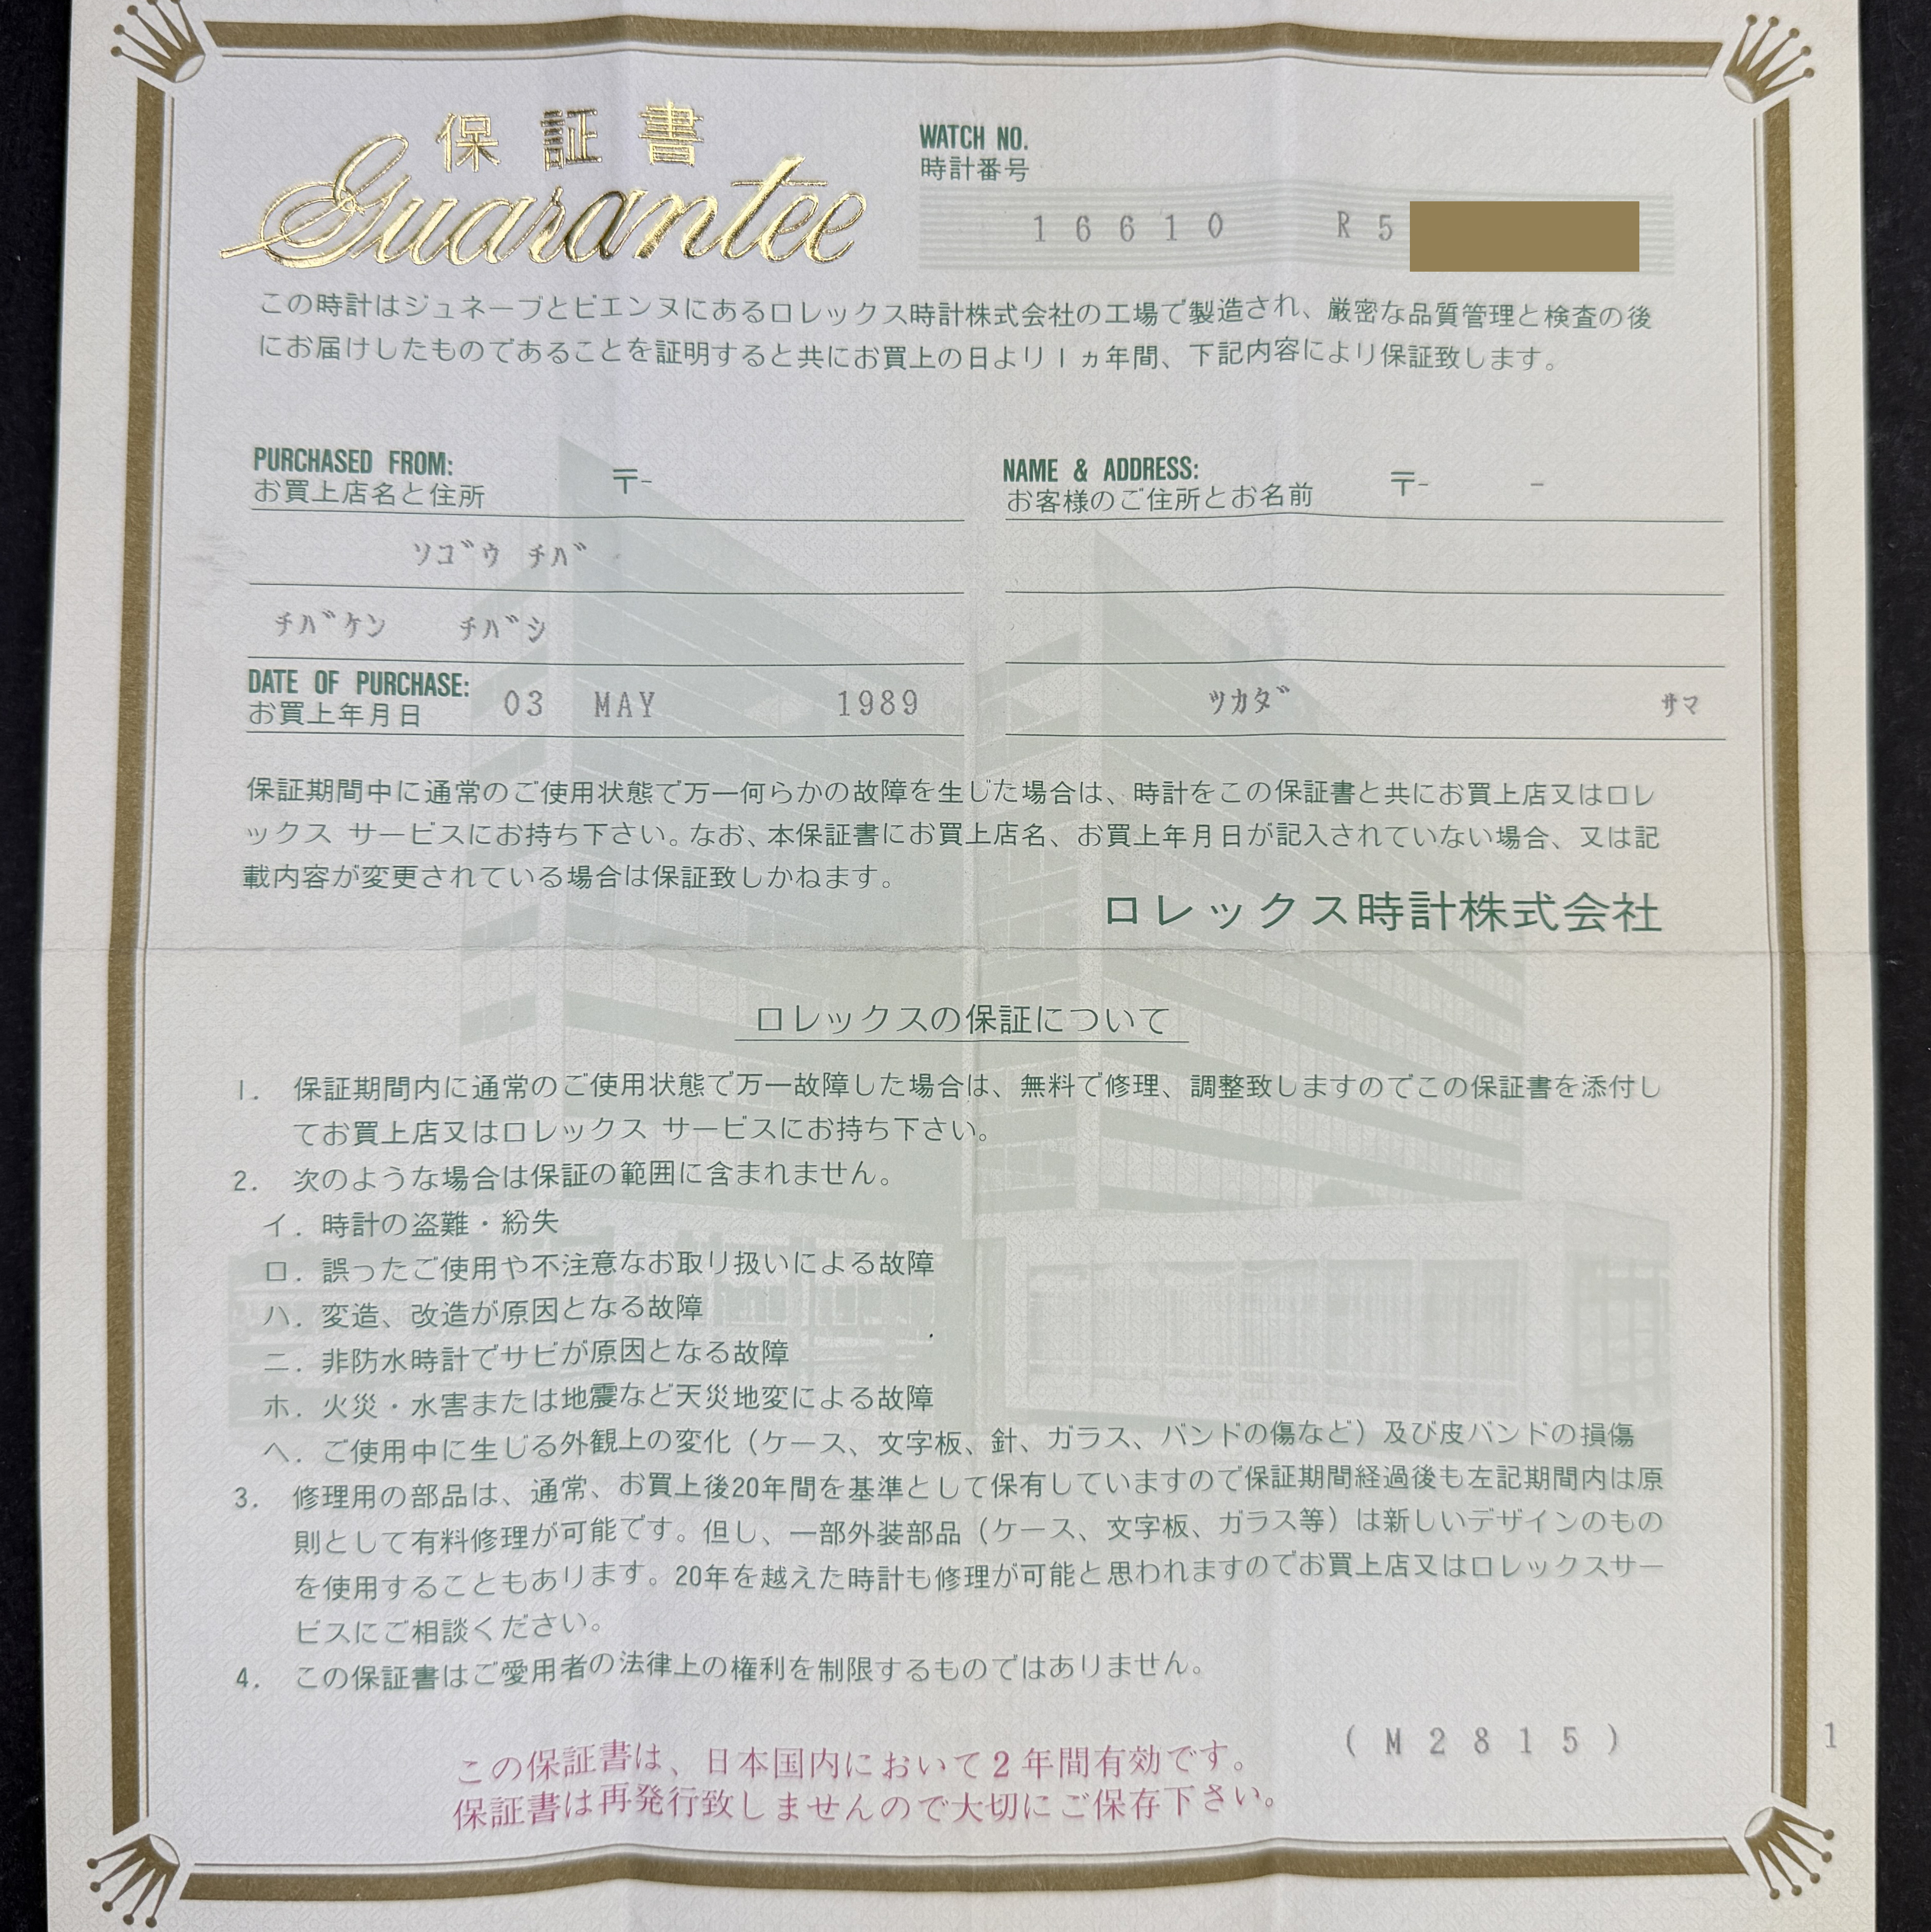 保証書
Guarantee
WATCH NO.
時計番号
16610 R5
この時計はジュネーブとビエンヌにあるロレックス時計株式会社の工場で製造され、厳密な品質管理と検査の後
にお届けしたものであることを証明すると共にお買上の日より1ヵ年間、下記内容により保証致します。
PURCHASED FROM:
お買上店名と住所 〒-
ソゴウ チバ
チバケン チバシ
DATE OF PURCHASE:
お買上年月日 03 MAY 1989
NAME & ADDRESS:
お客様のご住所とお名前 〒- -
ツカダ サマ
保証期間中に通常のご使用状態で万一何らかの故障を生じた場合は、時計をこの保証書と共にお買上店又はロレ
ックス サービスにお持ち下さい。なお、本保証書にお買上店名、お買上年月日が記入されていない場合、又は記
載内容が変更されている場合は保証致しかねます。
ロレックス時計株式会社
ロレックスの保証について
1. 保証期間内に通常のご使用状態で万一故障した場合は、無料で修理、調整致しますのでこの保証書を添付し
てお買上店又はロレックス サービスにお持ち下さい。
2. 次のような場合は保証の範囲に含まれません。
イ. 時計の盗難・紛失
ロ. 誤ったご使用や不注意なお取り扱いによる故障
ハ. 変造、改造が原因となる故障
ニ. 非防水時計でサビが原因となる故障
ホ. 火災・水害または地震など天災地変による故障
ヘ. ご使用中に生じる外観上の変化（ケース、文字板、針、ガラス、バンドの傷など）及び皮バンドの損傷
3. 修理用の部品は、通常、お買上後20年間を基準として保有していますので保証期間経過後も左記期間内は原
則として有料修理が可能です。但し、一部外装部品（ケース、文字板、ガラス等）は新しいデザインのもの
を使用することもあります。20年を越えた時計も修理が可能と思われますのでお買上店又はロレックスサー
ビスにご相談ください。
4. この保証書はご愛用者の法律上の権利を制限するものではありません。
(M2815) 1
この保証書は、日本国内において2年間有効です。
保証書は再発行致しませんので大切にご保存下さい。